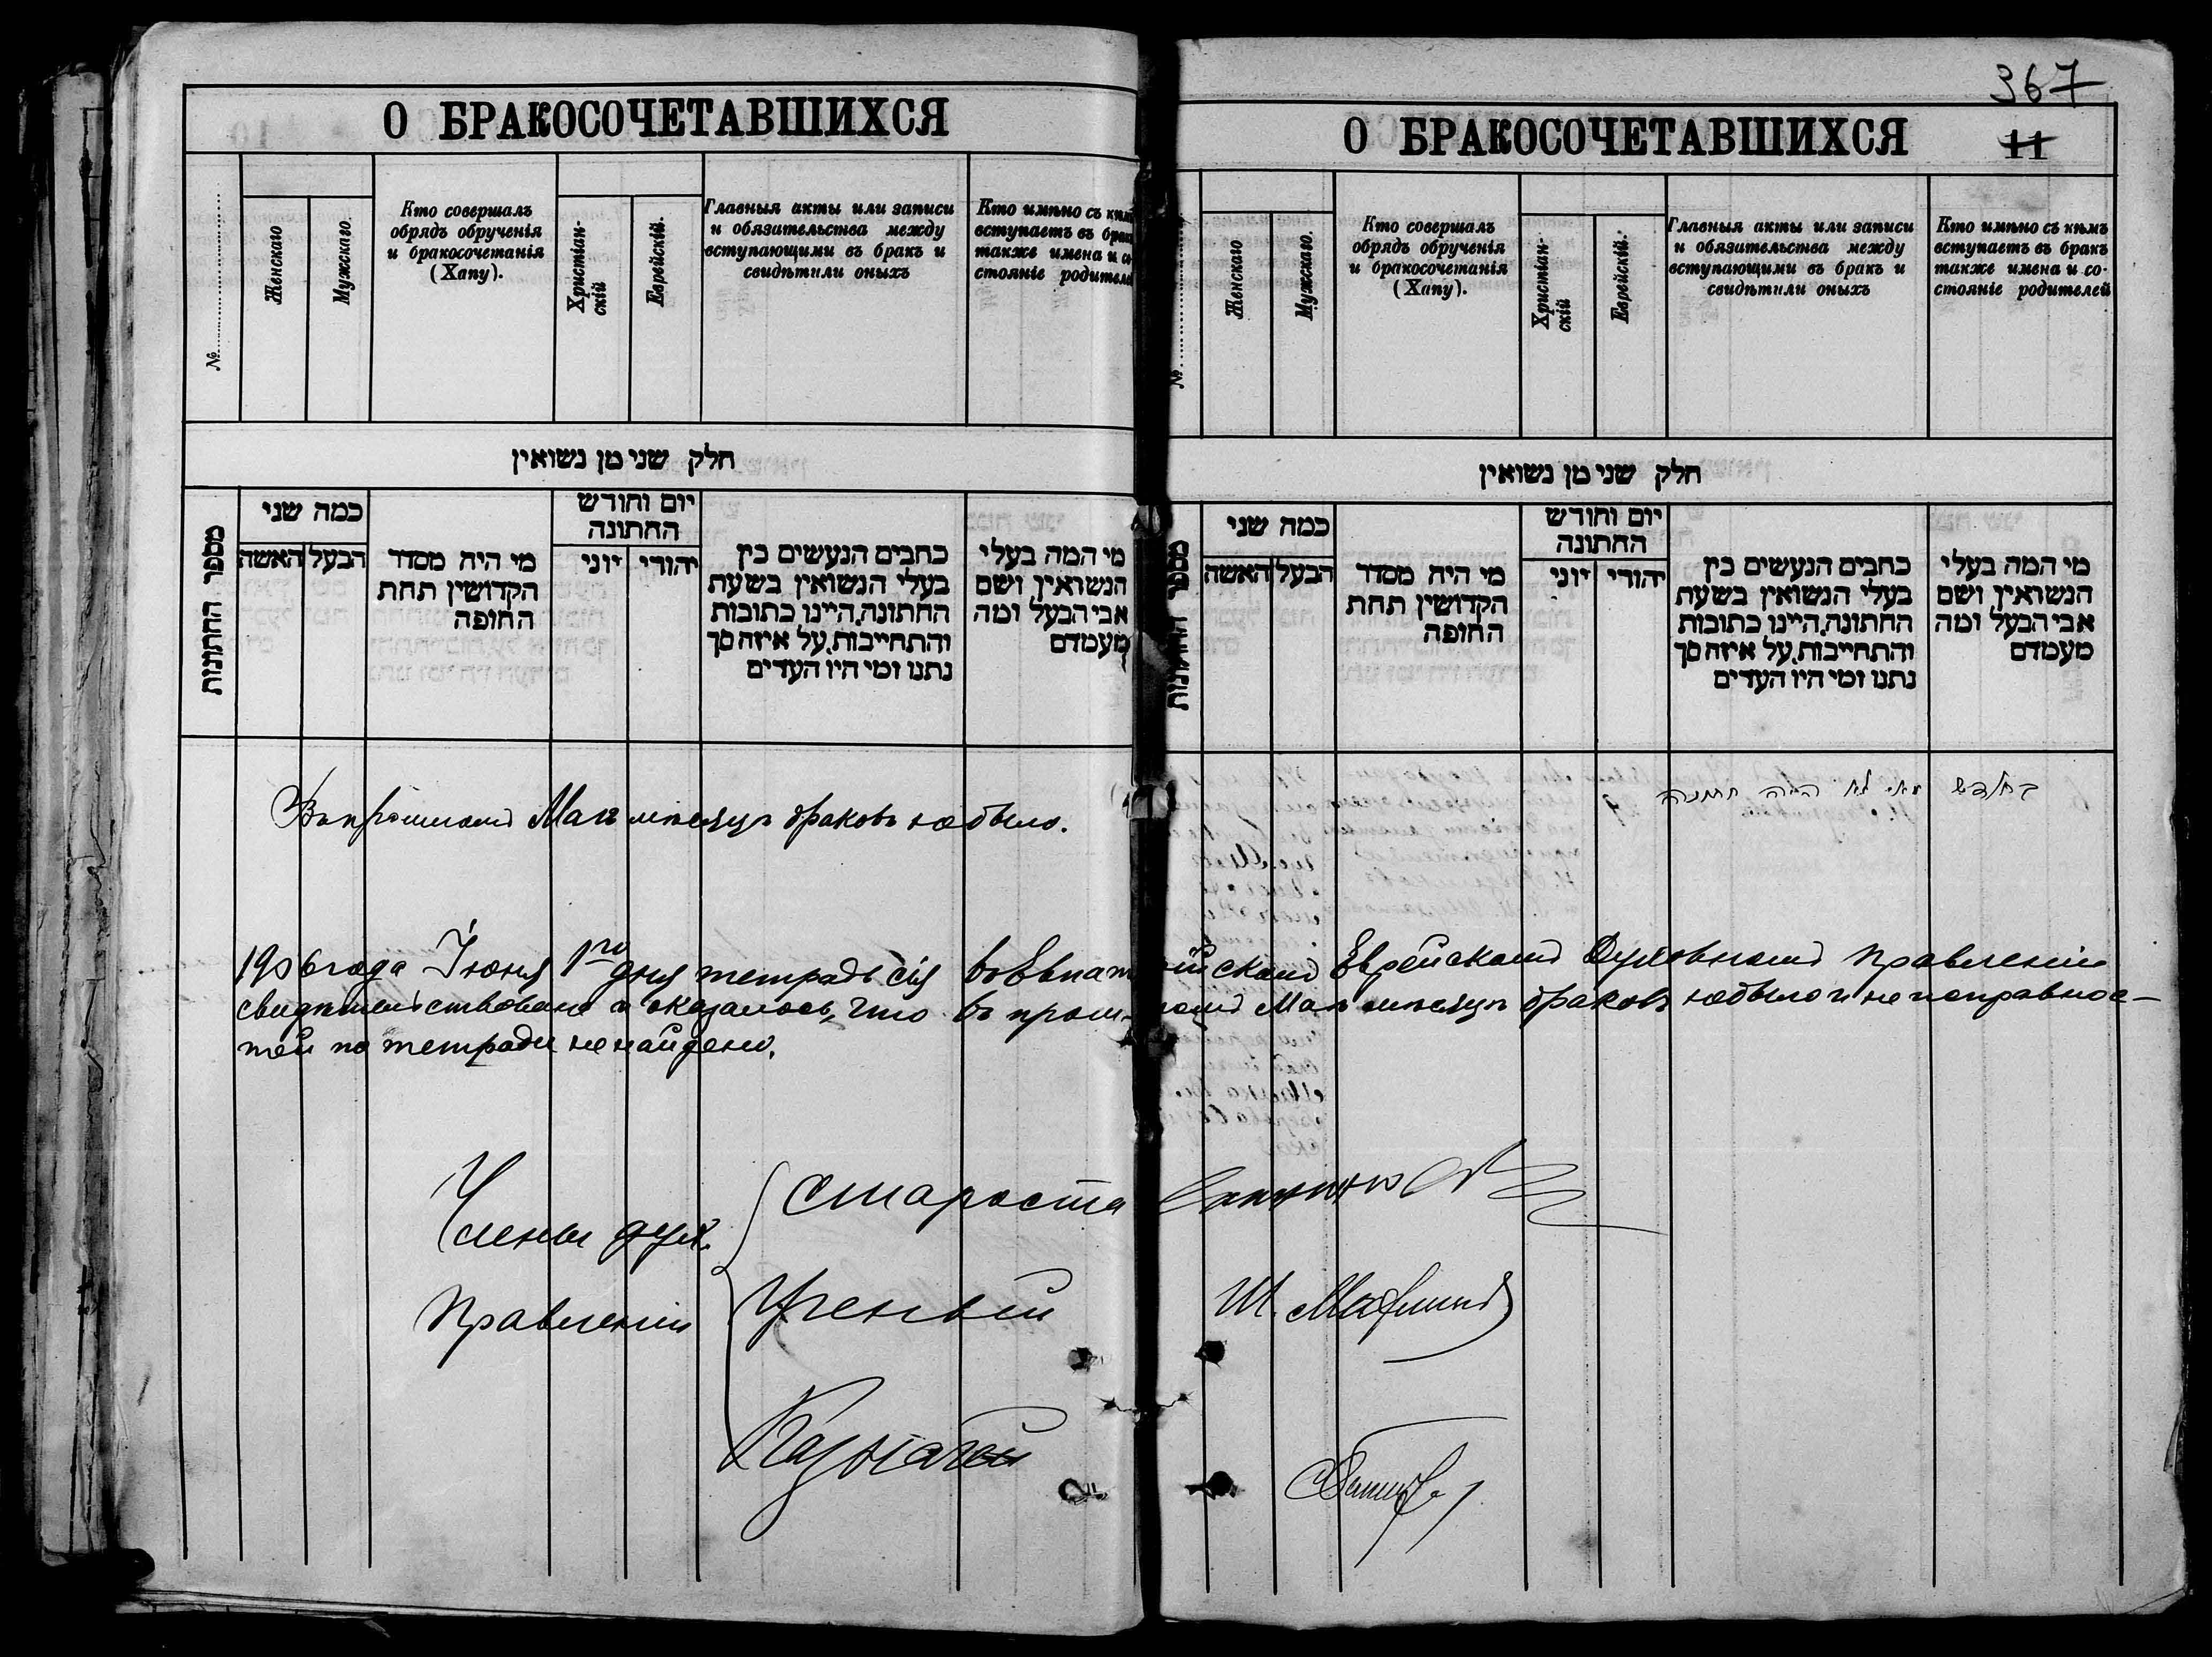 О БРАКОСОЧЕТАВШИХСЯ
№
Женскаго
Мужскаго.
Кто совершалъ
обрядъ обрученія
и бракосочетанія
(Хапу).
Христіан-
скій
Еврейскій.
Главныя акты или записи
и обязательства между
вступающими въ бракъ и
свидѣтили оныхъ
Кто имѣно съ
вступаетъ въ
также имена и
стояніе
חלק שני מן נשואין
מספר החתונות
כמה שני
הבעל
האשה
מי היה מסדר
הקדושין תחת
החופה
יום וחודש
החתונה
יהודי
יוני
כתבים הנעשים בין
בעלי הנשואין בשעת
החתונה, היינו כתובות
והתחייבות, על איזה סך
נתנו ומי היו העדים
מי המה בעלי
הנשואין ושם
אבי הבעל ומה
מעמדם
Въ прошломъ Маѣ мѣсяцѣ браковъ не было.
367
О БРАКОСОЧЕТАВШИХСЯ
11
№
Женскаго
Мужскаго.
Кто совершалъ
обрядъ обрученія
и бракосочетанія
(Хапу).
Христіан-
скій
Еврейскій.
Главныя акты или записи
и обязательства между
вступающими въ бракъ и
свидѣтили оныхъ
Кто имѣно съ кѣмъ
вступаетъ въ бракъ
также имена и со-
стояніе родителей
חלק שני מן נשואין
כמה שני
הבעל
האשה
מי היה מסדר
הקדושין תחת
החופה
יום וחודש
החתונה
יהודי
יוני
כתבים הנעשים בין
בעלי הנשואין בשעת
החתונה, היינו כתובות
והתחייבות, על איזה סך
נתנו ומי היו העדים
מי המה בעלי
הנשואין ושם
אבי הבעל ומה
מעמדם
בחדש מאי לא היה חתונה
1906 года Іюня 1го дня тетрадь сія въ Евпаторійскомъ Еврейскомъ Духовномъ Правленіи
свидѣтельствована и оказалось, что въ прошломъ Маѣ мѣсяцѣ браковъ не было и неисправнос-
тей по тетради не найдено.
Члены дух.
Правленія
Староста
Ученый
Казначей
Ш.